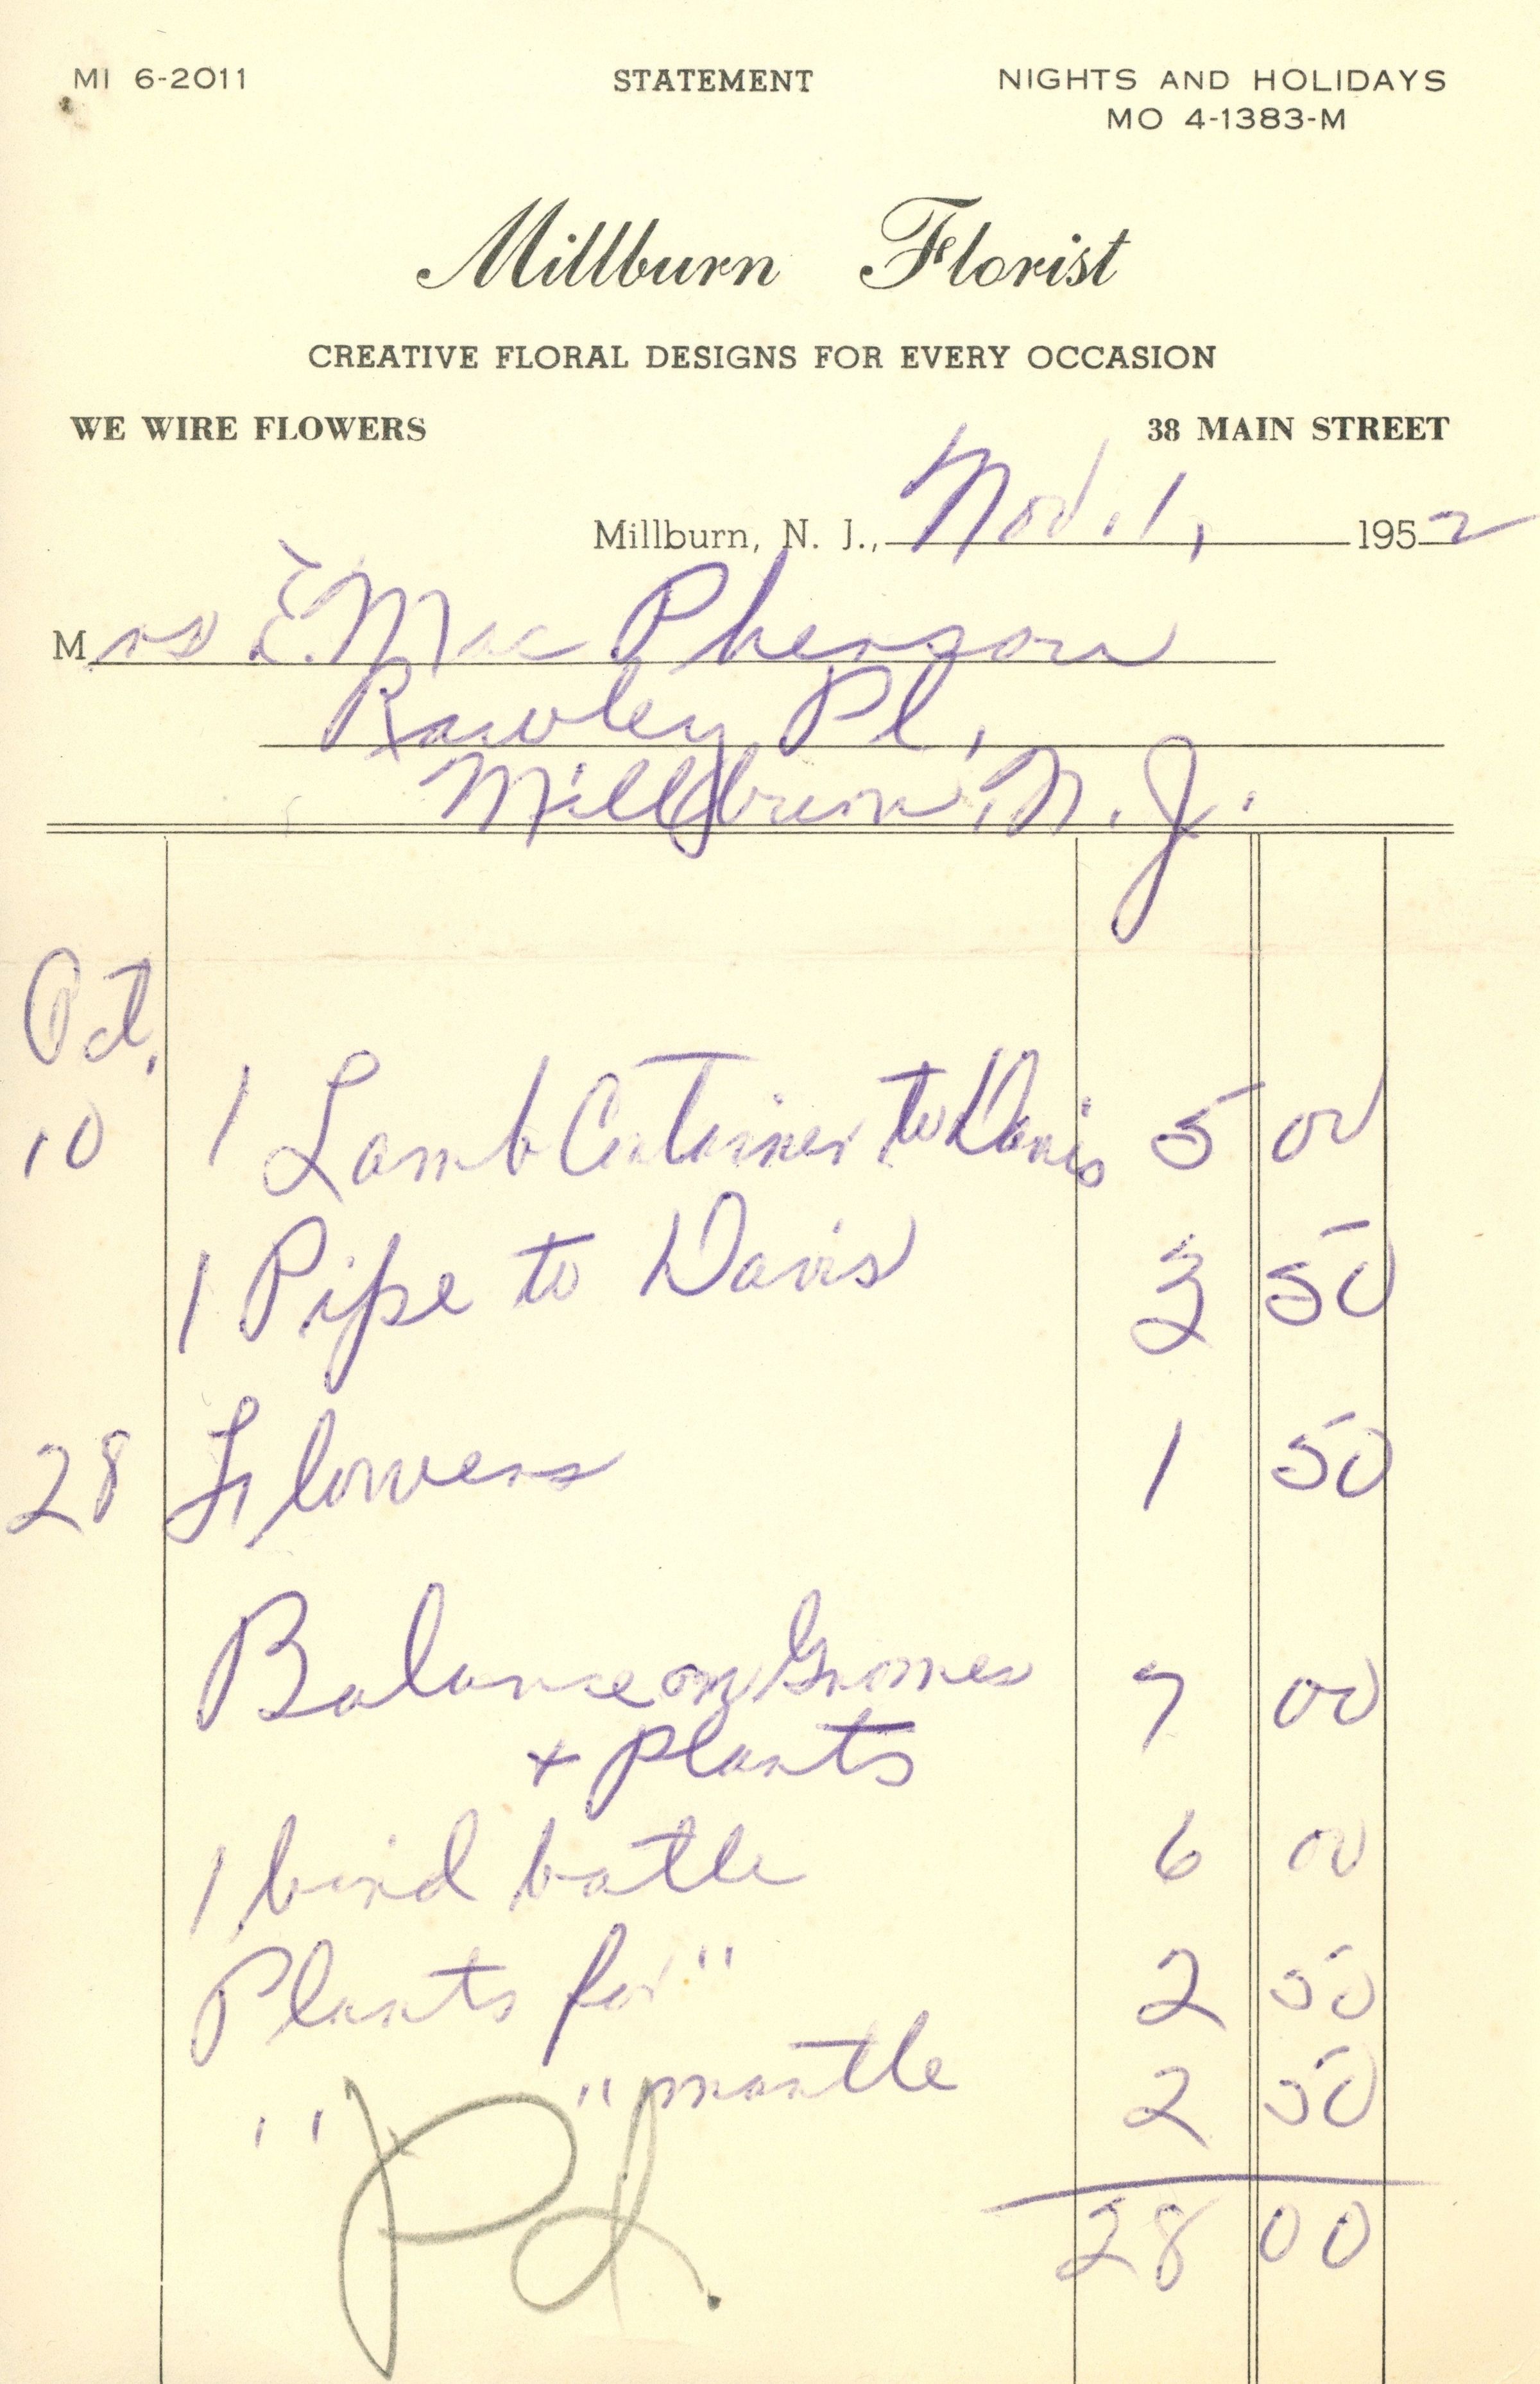 MI 6-2011 STATEMENT NIGHTS AND HOLIDAYS
MO 4-1383-M
Millburn Florist
CREATIVE FLORAL DESIGNS FOR EVERY OCCASION
WE WIRE FLOWERS 38 MAIN STREET
Millburn, N. J., Nov. 1, 1952
Mrs E. Mac Pherson
Rawley Pl,
Millburn, N. J.
Oct.
10 1 Lamb Container to Davis 5 00
1 Pipe to Davis 3 50
28 Flowers 1 50
Balance on Gnomes 7 00
+ plants
1 bird bottle 6 00
Plants for " 2 50
" " mantle 2 50
28 00
Pd.